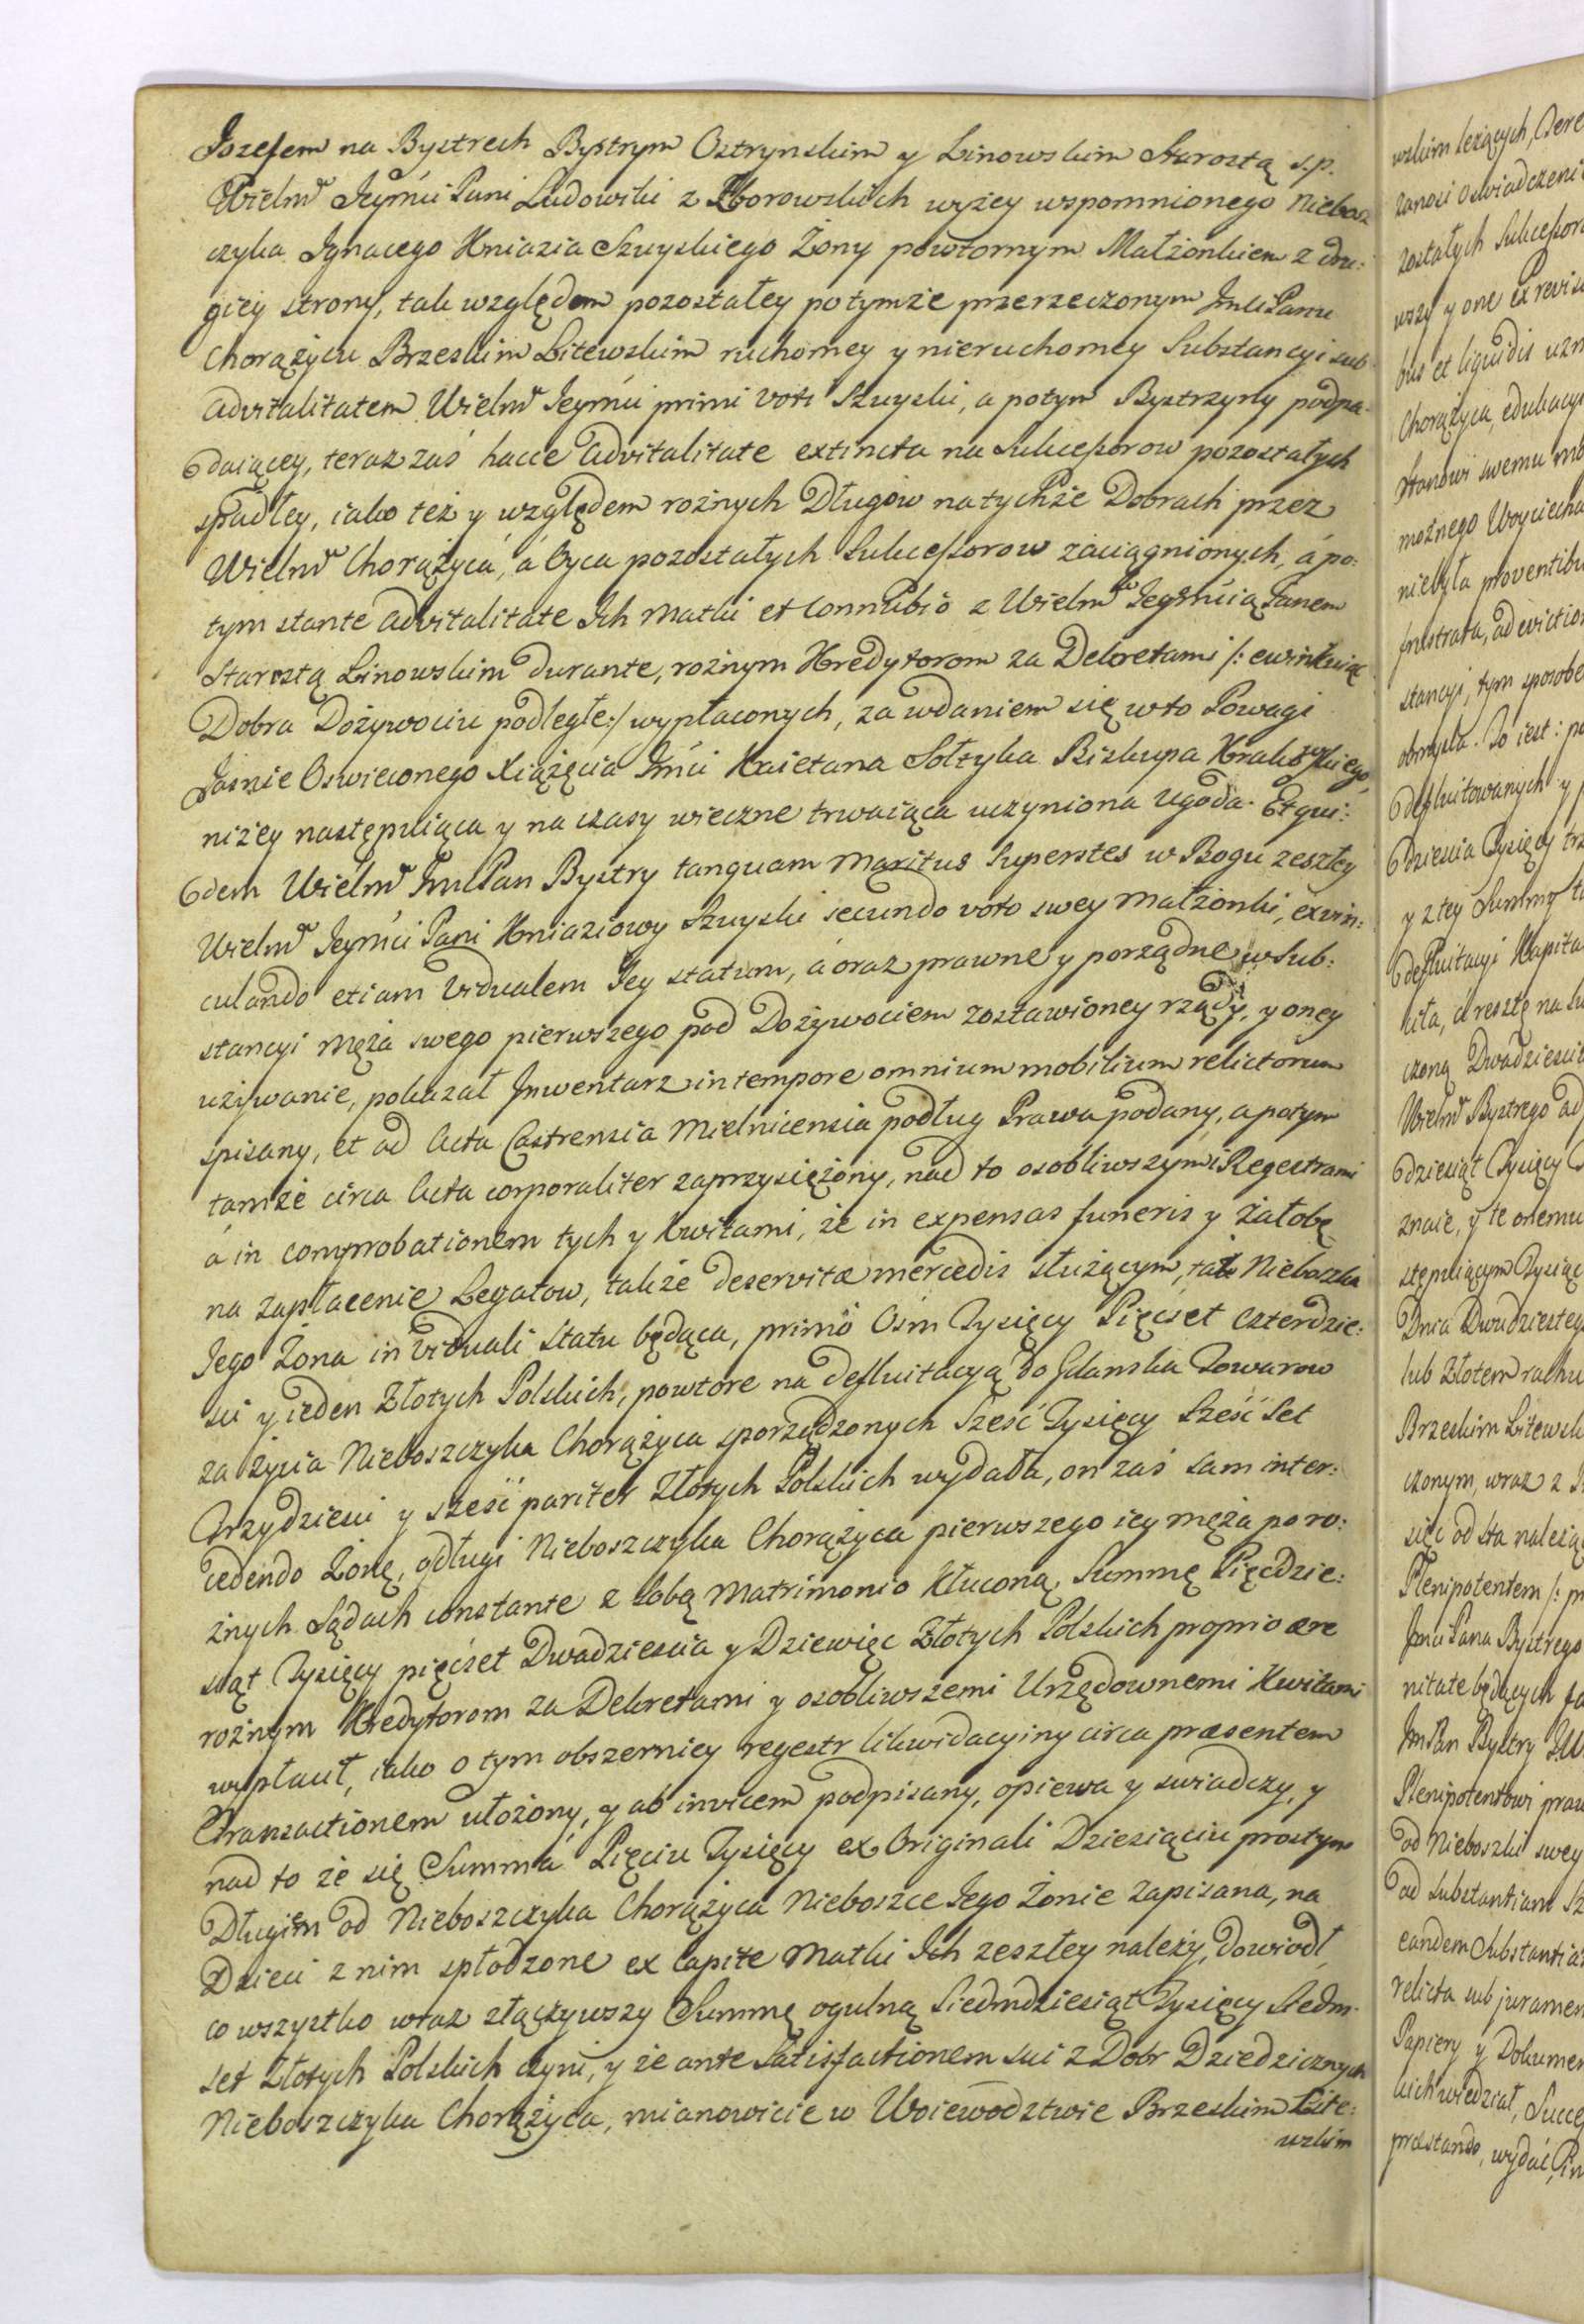 Jozefem na Bystrech Bystrym Ostrynskim y Linowskim Starostą s.p.
Wielm Jeymći Pani Ludowiki z Zborowskich wyżey wspomnionego Niebosz
czyka Ignacego Kniazia Szuyskiego Żony powtornym Małżonkiem z dru:
giey strony, tak względem pozostałey po tymże przerzeczonym Jmci Panu
Chorążycu Brzeskim Litewskim ruchomey y nieruchomey Substancyi sub
advitalitatem Wielm Jeymći primi voti Szuyski, a potym Bystrzyny podpa:
daiącey, teraz zaś hacce advitalitate extincta na Sukceszorow pozostałych
spadłey, iako też y względem rożnych Długow na tychże Dobrach przez
Wielm Chorążyca, á Oyca pozostałych Sukceszorow zaciągnionych, á po:
tym stante advitalitate Ich Matki et connubio z Wielm Jegomścią Panem
Starostą Linowskim durante, rożnym Kredytorom za Dekretami /: ewinkuiąc
Dobra Dożywociu podległe :/ wypłaconych, za wdaniem się w to Powagi
Jasnie Oswieconego Xiążęcia Jmći Kaietana Sołtyka Biskupa Krakowskiego,
niżey następuiąca y na czasy wieczne trwaiąca uczyniona Ugoda. Et qui:
dem Wielm Jmć Pan Bystry tanquam Maritus Superstes w Bogu zeszłey
Wielm Jeymći Pani Kniaziowy Szuyski secundo voto swey Małżonki, ex vin:
culando etiam Vidualem Jey statum, á oraz prawne y porządne w Sub:
stancyi Męża swego pierwszego pod Dożywociem zostawioney rządy, y oney
używanie, pokazał Inwentarz in tempore omnium mobilium relictorum
spisany, et ad Acta Castrensia Mielnicensia podług Prawa podany, a potym
tamże circa Acta corporaliter zaprzysiężony, nad to osobliwszymi Regestrami
á in comprobationem tych y Kwitami, że in expensas funeris y żałobę
na zapłacenie Legatow, także deservitæ mercedis służącym, taż Nieboszka
Jego Żona in Viduali statu będąca, primo Osm Tysięcy Pięćset czterdzie:
sci y ieden Złotych Polskich, powtore na defluitacyą do Gdanska Towarow
za życia Nieboszczyka Chorążyca sporządzonych Sześć Tysięcy Sześć Set
Trzydziesci y sześć pariter Złotych Polskich wydała, on zaś sam inter:
cedendo Żonę, o długi Nieboszczyka Chorążyca pierwszego iey męża po ro:
żnych Sądach constante z sobą Matrimonio kłuconą, Summę Pięćdzie:
siąt Tysięcy pięćset Dwadziescia y Dziewięc Złotych Polskich proprio ære
rożnym Kredytorom za Dekretami y osobliwszemi Urzędownemi Kwitami
wypłacił, iako o tym obszerniey regestr likwidacyiny circa præsentem
Transactionem ułożony, y ab invicem podpisany, opiewa y swiadczy, y
nad to że się Summa Pięciu Tysięcy ex Originali Dziesiąciu prostym
Długiem od Nieboszczyka Chorążyca Nieboszce Jego Żonie zapisana, na
Dzieci z nim spłodzone ex capite Matki Ich zeszłey należy, dowiodł,
co wszystko wraz złączywszy Summę ogulną Siedmdziesiąt Tysięcy Siedm:
set Złotych Polskich czyni, y że ante Satisfactionem sui z Dobr Dziedzicznych
Nieboszczyka Chorążyca, mianowicie w Woiewodztwie Brzeskim Lite:
wskim
wskim leżących,
zanosi Oswiadczeni
zostałych Sukceszor
wszy y one ex revis
bus et liquidis uzn
Chorążyca, edukacy
Stanowi swemu mo
możnego Woyciecha
niebyła proventibu
frustrata, ad eviction
stancyi, tym sposobe
obmysla. To iest: po
defluitowanych y
dziescia Tysięcy trz
y z tey Summy
defluitacyi Kapita
kita, á resztę na Su
czoną Dwadziesci
Wielm Bystrego ad
dziesiąt Tysięcy
znaie, y te onemu
stępuiącym Tysiąc
Dnia Dwudziesteg
lub Złotem rachu
Brzeskim Litewsk
czonym, wraz z
sięc od sta należą
Plenipotentem /: pr
Jmci Pana Bystrego
nitate będących
Jm Pan Bystry
Plenipotentowi praw
od Nieboszki swey
ad Substantiam Sz
eandem Substantia
relicta sub juramen
Papiery y Dokumen
kich wiedział, Succe
præstando, wydać,